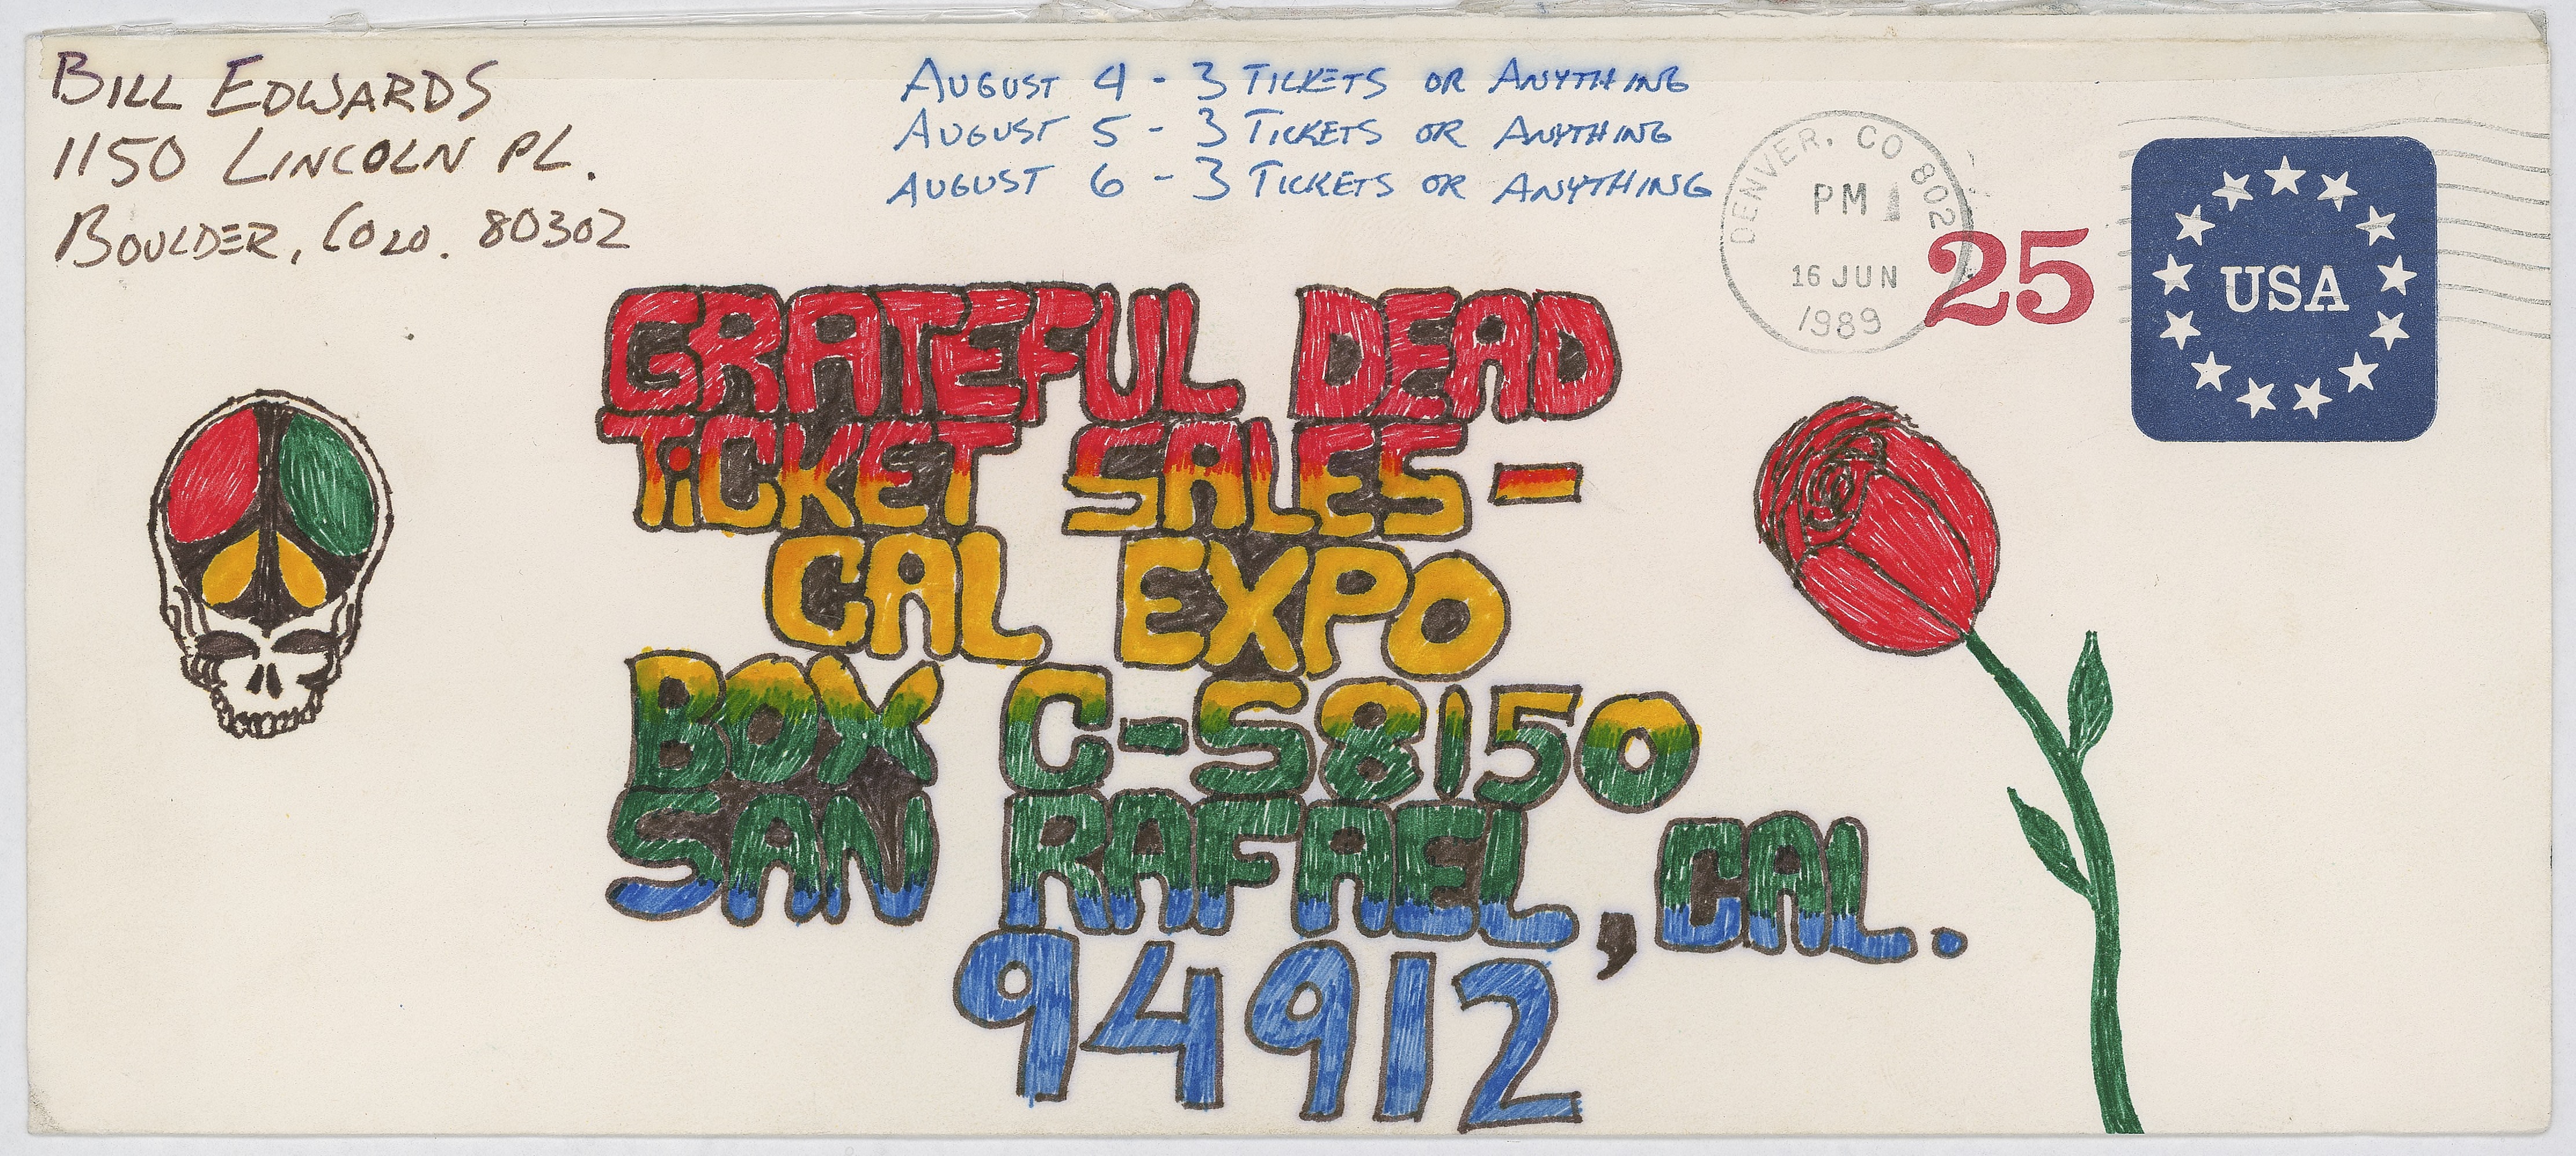 BILL EDWARDS
1150 LINCOLN PL.
BOULDER, COLO. 80302
AUGUST 4 - 3 TICKETS OR ANYTHING
AUGUST 5 - 3 TICKETS OR ANYTHING
AUGUST 6 - 3 TICKETS OR ANYTHING
DENVER, CO 802
PM
16 JUN
1989
25
USA
GRATEFUL DEAD
TiCKET SALES -
CAL EXPO
BOX C-S8150
SAN RAFAEL, CAL.
94912